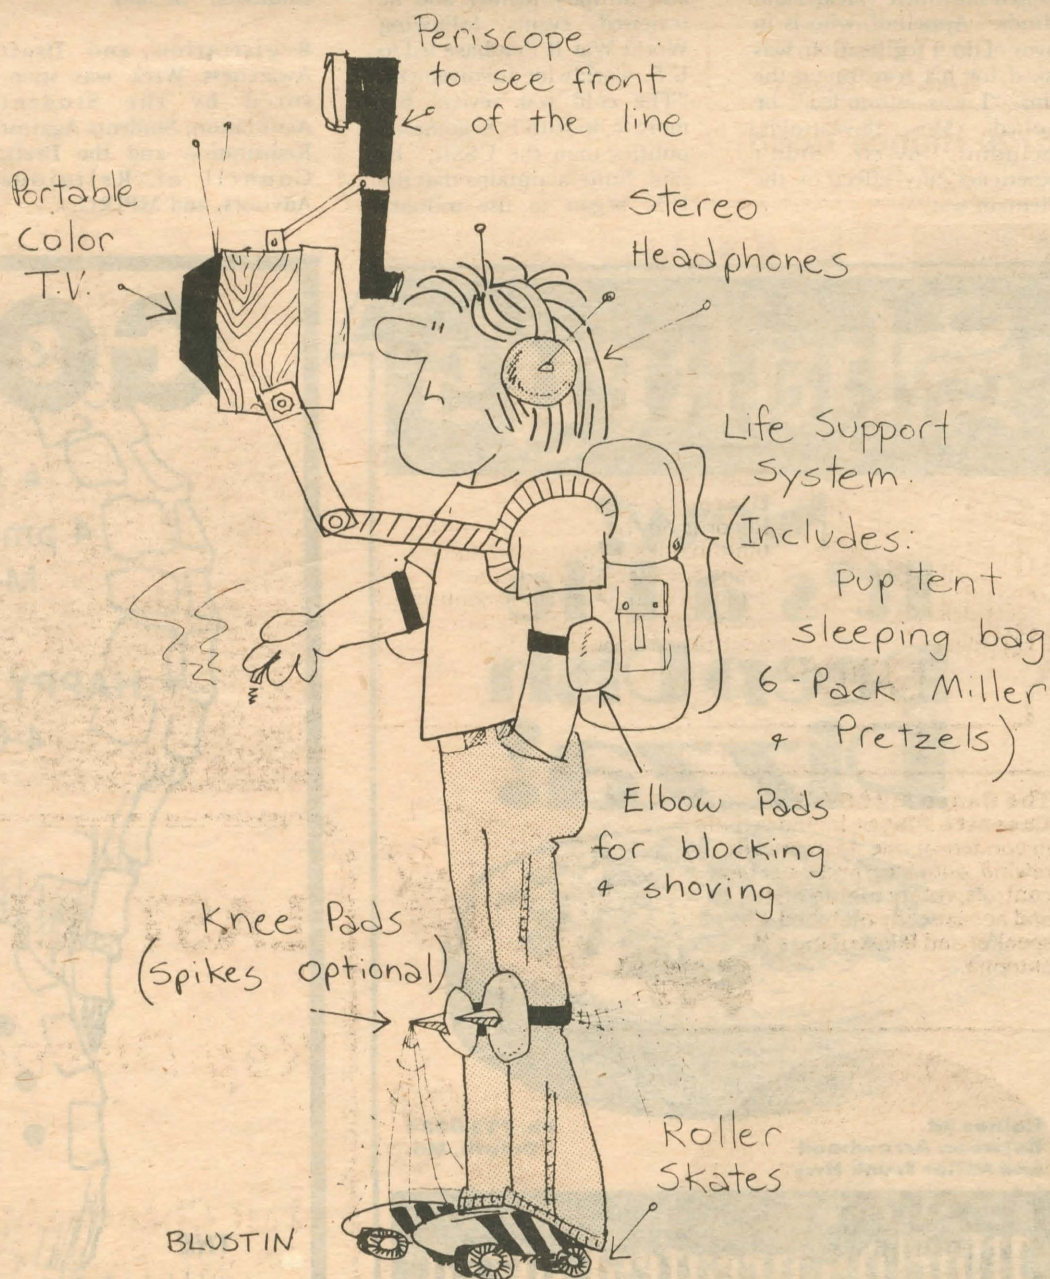 Periscope
to see front
of the line
Portable
Color
T.V.
Stereo
Headphones
Life Support
System.
(Includes:
pup tent
sleeping bag
6-Pack Miller
& Pretzels)
Elbow Pads
for blocking
& shoving
Knee Pads
(spikes optional)
Roller
Skates
BLUSTIN